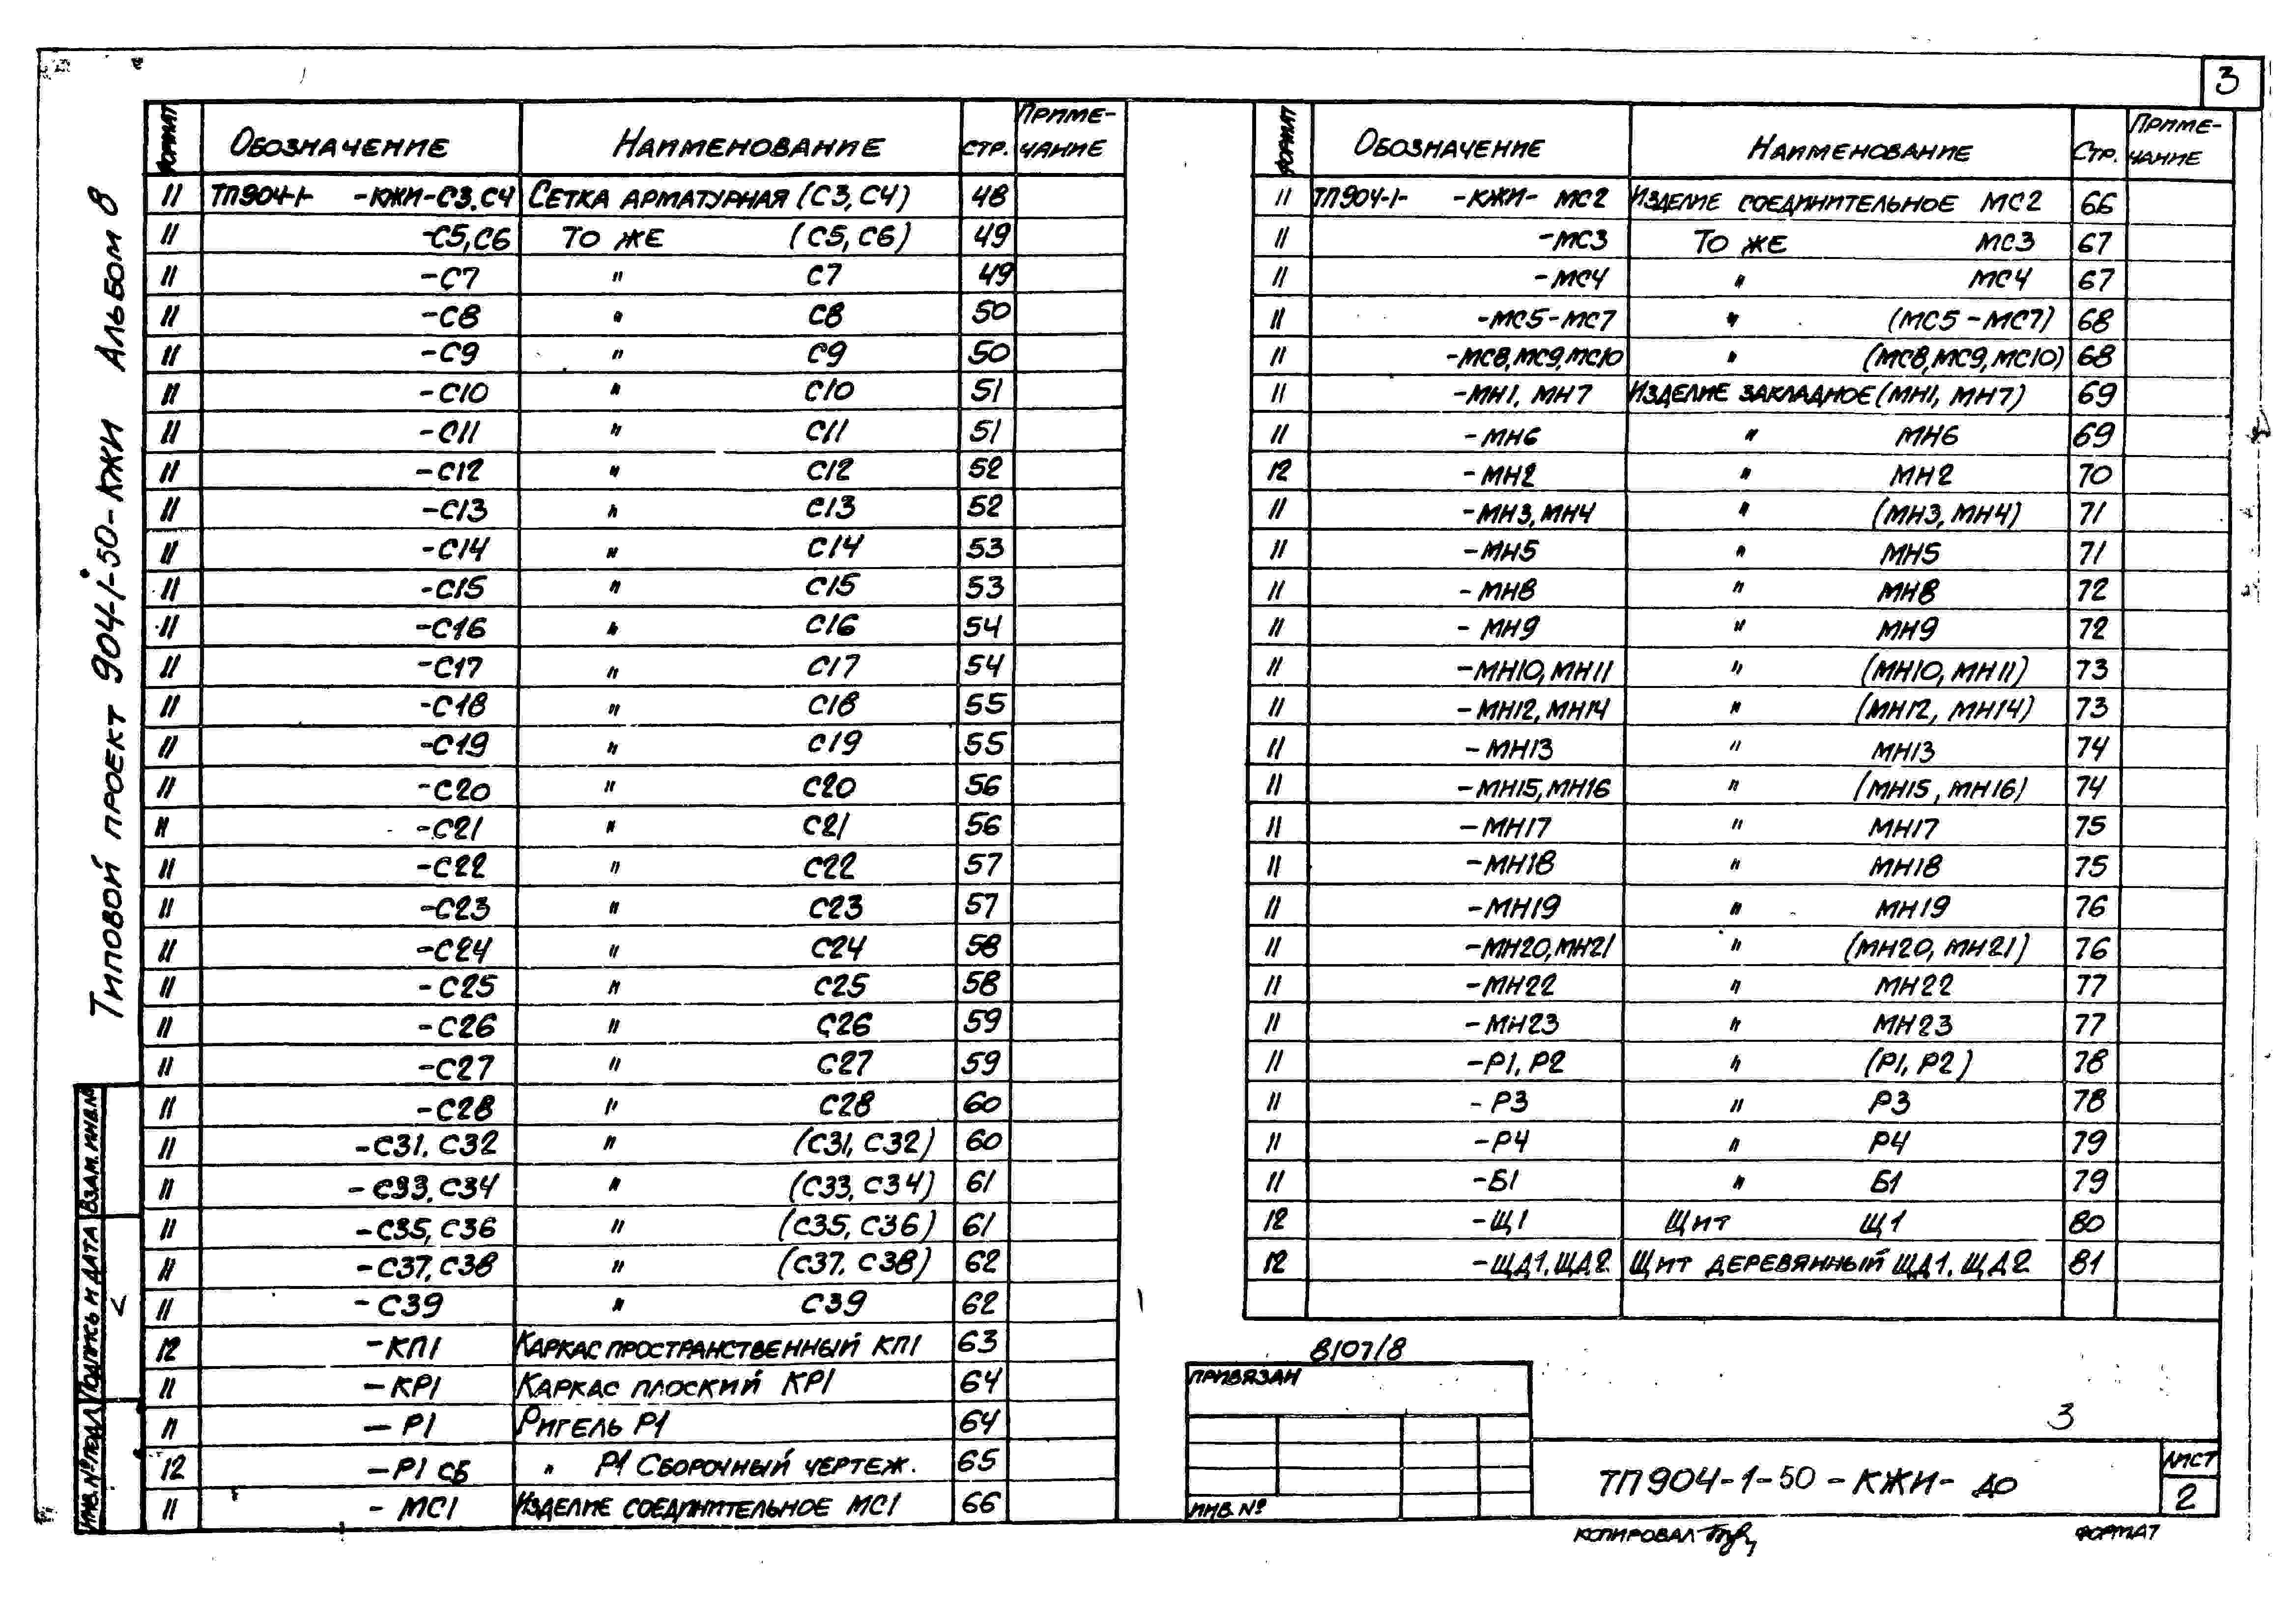 3
Типовой проект 904-1-50-КЖИ Альбом 8
Формат Обозначение Наименование Стр. Примечание
11 ТП904-1- -КЖИ-С3,С4 Сетка арматурная (С3, С4) 48
11 -С5,С6 То же (С5, С6) 49
11 -С7 " С7 49
11 -С8 " С8 50
11 -С9 " С9 50
11 -С10 " С10 51
11 -С11 " С11 51
11 -С12 " С12 52
11 -С13 " С13 52
11 -С14 " С14 53
11 -С15 " С15 53
11 -С16 " С16 54
11 -С17 " С17 54
11 -С18 " С18 55
11 -С19 " С19 55
11 -С20 " С20 56
11 -С21 " С21 56
11 -С22 " С22 57
11 -С23 " С23 57
11 -С24 " С24 58
11 -С25 " С25 58
11 -С26 " С26 59
11 -С27 " С27 59
11 -С28 " С28 60
11 -С31, С32 " (С31, С32) 60
11 -С33, С34 " (С33, С34) 61
11 -С35, С36 " (С35, С36) 61
11 -С37, С38 " (С37, С38) 62
11 -С39 " С39 62
12 -КП1 Каркас пространственный КП1 63
11 -КР1 Каркас плоский КР1 64
11 -Р1 Ригель Р1 64
12 -Р1 СБ " Р1 Сборочный чертеж. 65
11 -МС1 Изделие соединительное МС1 66
Формат Обозначение Наименование Стр. Примечание
11 ТП904-1- -КЖИ- МС2 Изделие соединительное МС2 66
11 -МС3 То же МС3 67
11 -МС4 " МС4 67
11 -МС5-МС7 " (МС5-МС7) 68
11 -МС8,МС9,МС10 " (МС8,МС9,МС10) 68
11 -МН1, МН7 Изделие закладное (МН1, МН7) 69
11 -МН6 " МН6 69
12 -МН2 " МН2 70
11 -МН3, МН4 " (МН3, МН4) 71
11 -МН5 " МН5 71
11 -МН8 " МН8 72
11 -МН9 " МН9 72
11 -МН10, МН11 " (МН10, МН11) 73
11 -МН12, МН14 " (МН12, МН14) 73
11 -МН13 " МН13 74
11 -МН15, МН16 " (МН15, МН16) 74
11 -МН17 " МН17 75
11 -МН18 " МН18 75
11 -МН19 " МН19 76
11 -МН20, МН21 " (МН20, МН21) 76
11 -МН22 " МН22 77
11 -МН23 " МН23 77
11 -Р1, Р2 " (Р1, Р2) 78
11 -Р3 " Р3 78
11 -Р4 " Р4 79
11 -Б1 " Б1 79
12 -Щ1 Щит Щ1 80
12 -ЩД1, ЩД2 Щит деревянный ЩД1, ЩД2 81
8107/8
Привязан
Инв. №
3
ТП904-1-50-КЖИ-ДО
Лист
2
Копировал
Формат
Взам. инв. №
Подпись и дата
Инв. № подл.